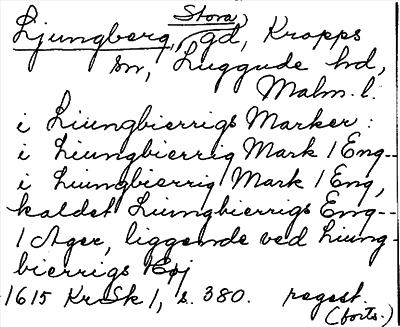 Stora
Ljungberg, gd, Kropps
sn, Luggude hd,
Malm. l.
i Liungbierrigs Marker:
i Liungbierrig Mark 1 Eng--
i Liungbierrig Mark 1 Eng,
kaldet Liungbierrigs Eng--
1 Ager, liggende ved Liung-
bierrigs Bÿ
1615 KrSk 1, s. 380. regest.
(forts.)